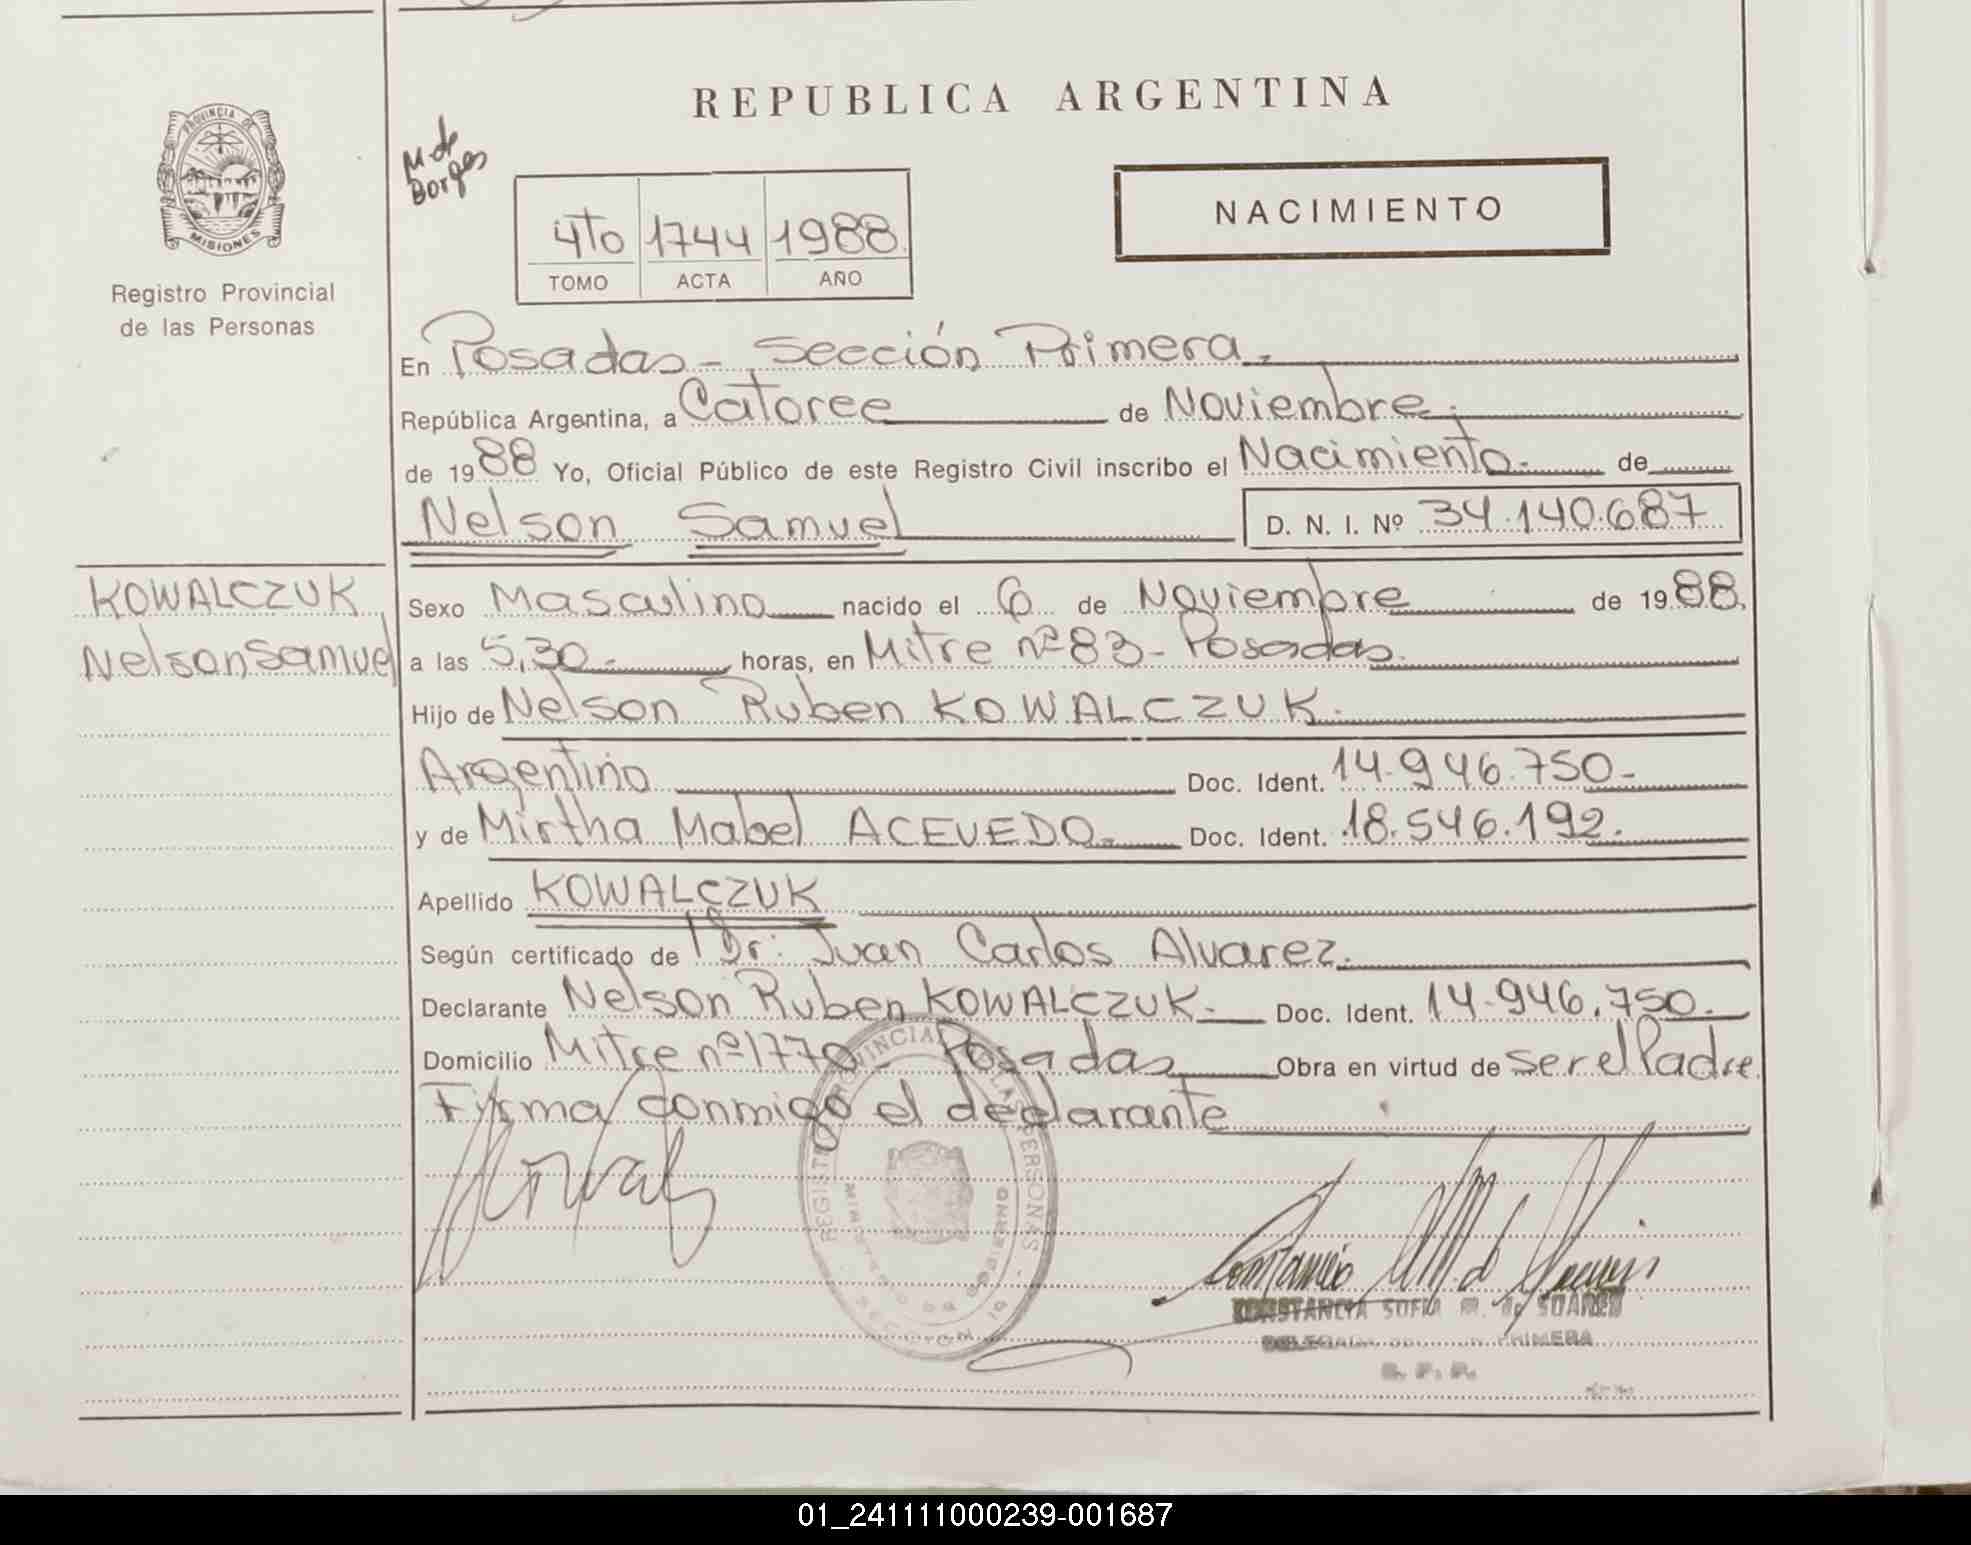 REPUBLICA ARGENTINA
PROVINCIA DE
MISIONES
Registro Provincial
de las Personas
M. de
Borges
4To 1744 1988.
TOMO ACTA AÑO
NACIMIENTO
En Posadas - Sección Primera.
República Argentina, a Catorce de Noviembre.
de 1988 Yo, Oficial Público de este Registro Civil inscribo el Nacimiento. de
Nelson Samuel D. N. I. Nº 34.140.687
KOWALCZUK
Nelson Samuel
Sexo Masculino nacido el 6 de Noviembre de 1988.
a las 5,30. horas, en Mitre nº 83 - Posadas.
Hijo de Nelson Ruben KOWALCZUK.
Argentino Doc. Ident. 14.946.750-
y de Mirtha Mabel ACEVEDO. Doc. Ident. 18.546.192.
Apellido KOWALCZUK
Según certificado de Dr: Juan Carlos Alvarez.
Declarante Nelson Ruben KOWALCZUK. Doc. Ident. 14.946.750.
Domicilio Mitre nº 1770 - Posadas Obra en virtud de ser el Padre.
Firma conmigo el declarante
REGISTRO PROVINCIAL DE LAS PERSONAS
MINISTERIO DE GOBIERNO
SECCION 1a
CONSTANCIA SOFIA M. de SUAREZ
DELEGADA SECCION PRIMERA
R. P. P.
01_241111000239-001687